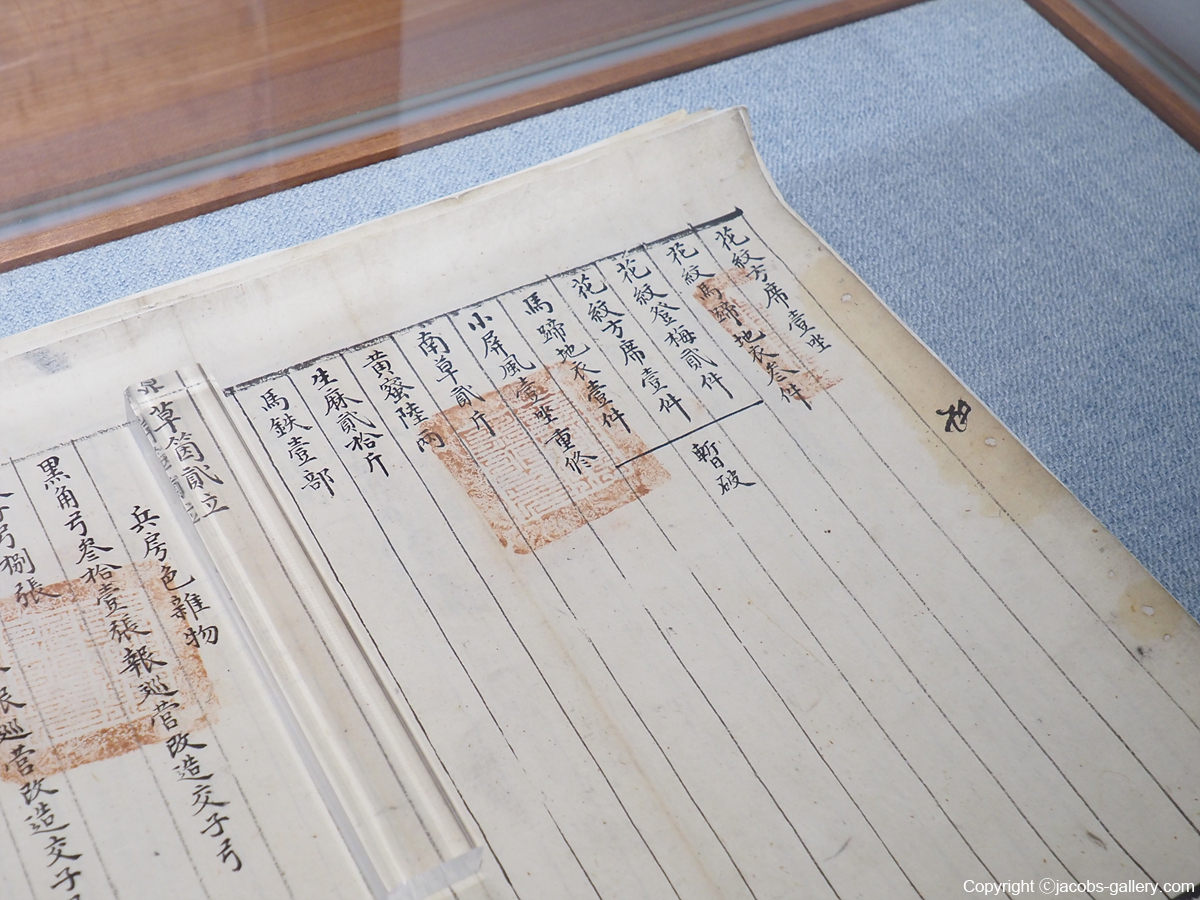 花紋方席壹坐
花紋馬蹄地衣叁件
花紋登梅貳件
花紋方席壹件
暫破
馬蹄地衣壹件
小屛風壹坐重修
南草貳斤
黃蜜陸兩
生麻貳拾斤
馬鉄壹部
草箇貳立
兵房色雜物
黑角弓叁拾壹張報巡營改造交子弓
弓捌張
報巡營改造交子
Copyright ©jacobs-gallery.com